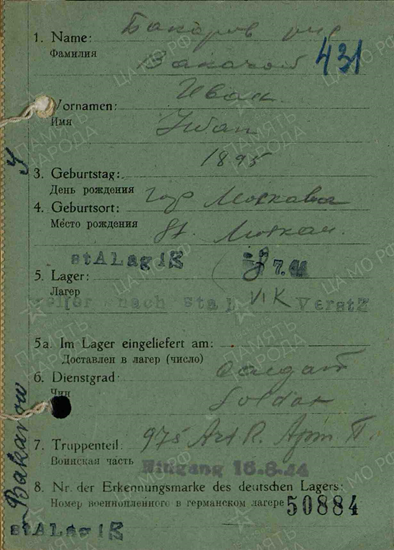 1. Name: Бакаров
Фамилия
431
Vornamen: Иван
Имя Iwan
1895
3. Geburtstag:
День рождения
4. Geburtsort: гор Москва
Место рождения St.
stALag IE
7.44
5. Lager:
Лагерь VI K
nach Stal Verst
5a. Im Lager eingeliefert am:
Доставлен в лагерь (число)
6. Dienstgrad: солдат
Чин Soldat
7. Truppenteil: 975 Art R.
Воинская часть
Eingang 16.8.44
8. Nr. der Erkennungsmarke des deutschen Lagers:
Номер военнопленного в германском лагере 50884
Bakarow
stALag IE
ПАМЯТЬ НАРОДА
ЦАМО.РФ